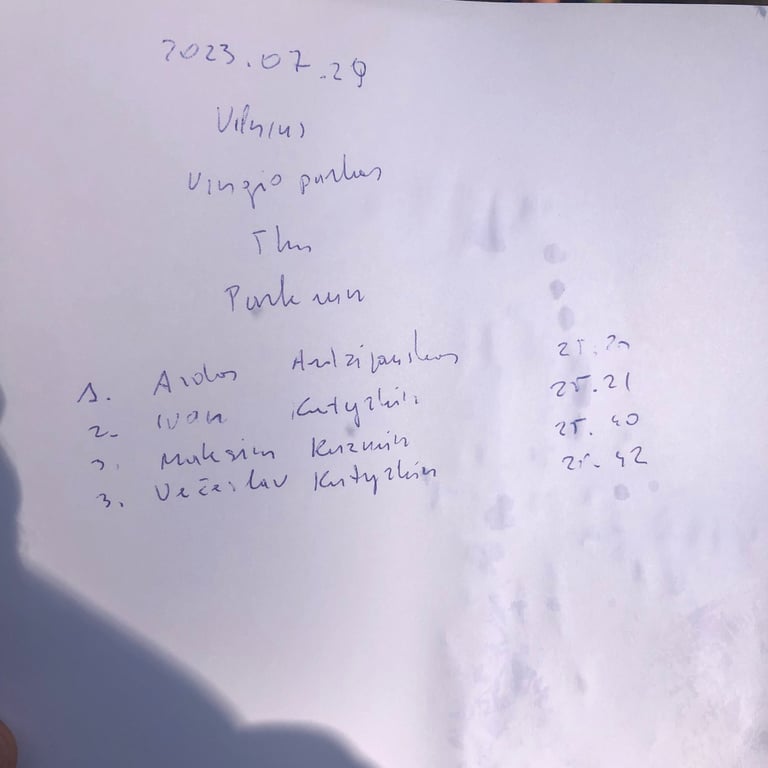 2023.07.29
Vilnius
Vingio parkas
Park run
1. Aidas
2. Ivan Kutyzkin 25.21
3. Maksim Kuzmin 25.40
3. Večeslav Kutyzkin 25.42